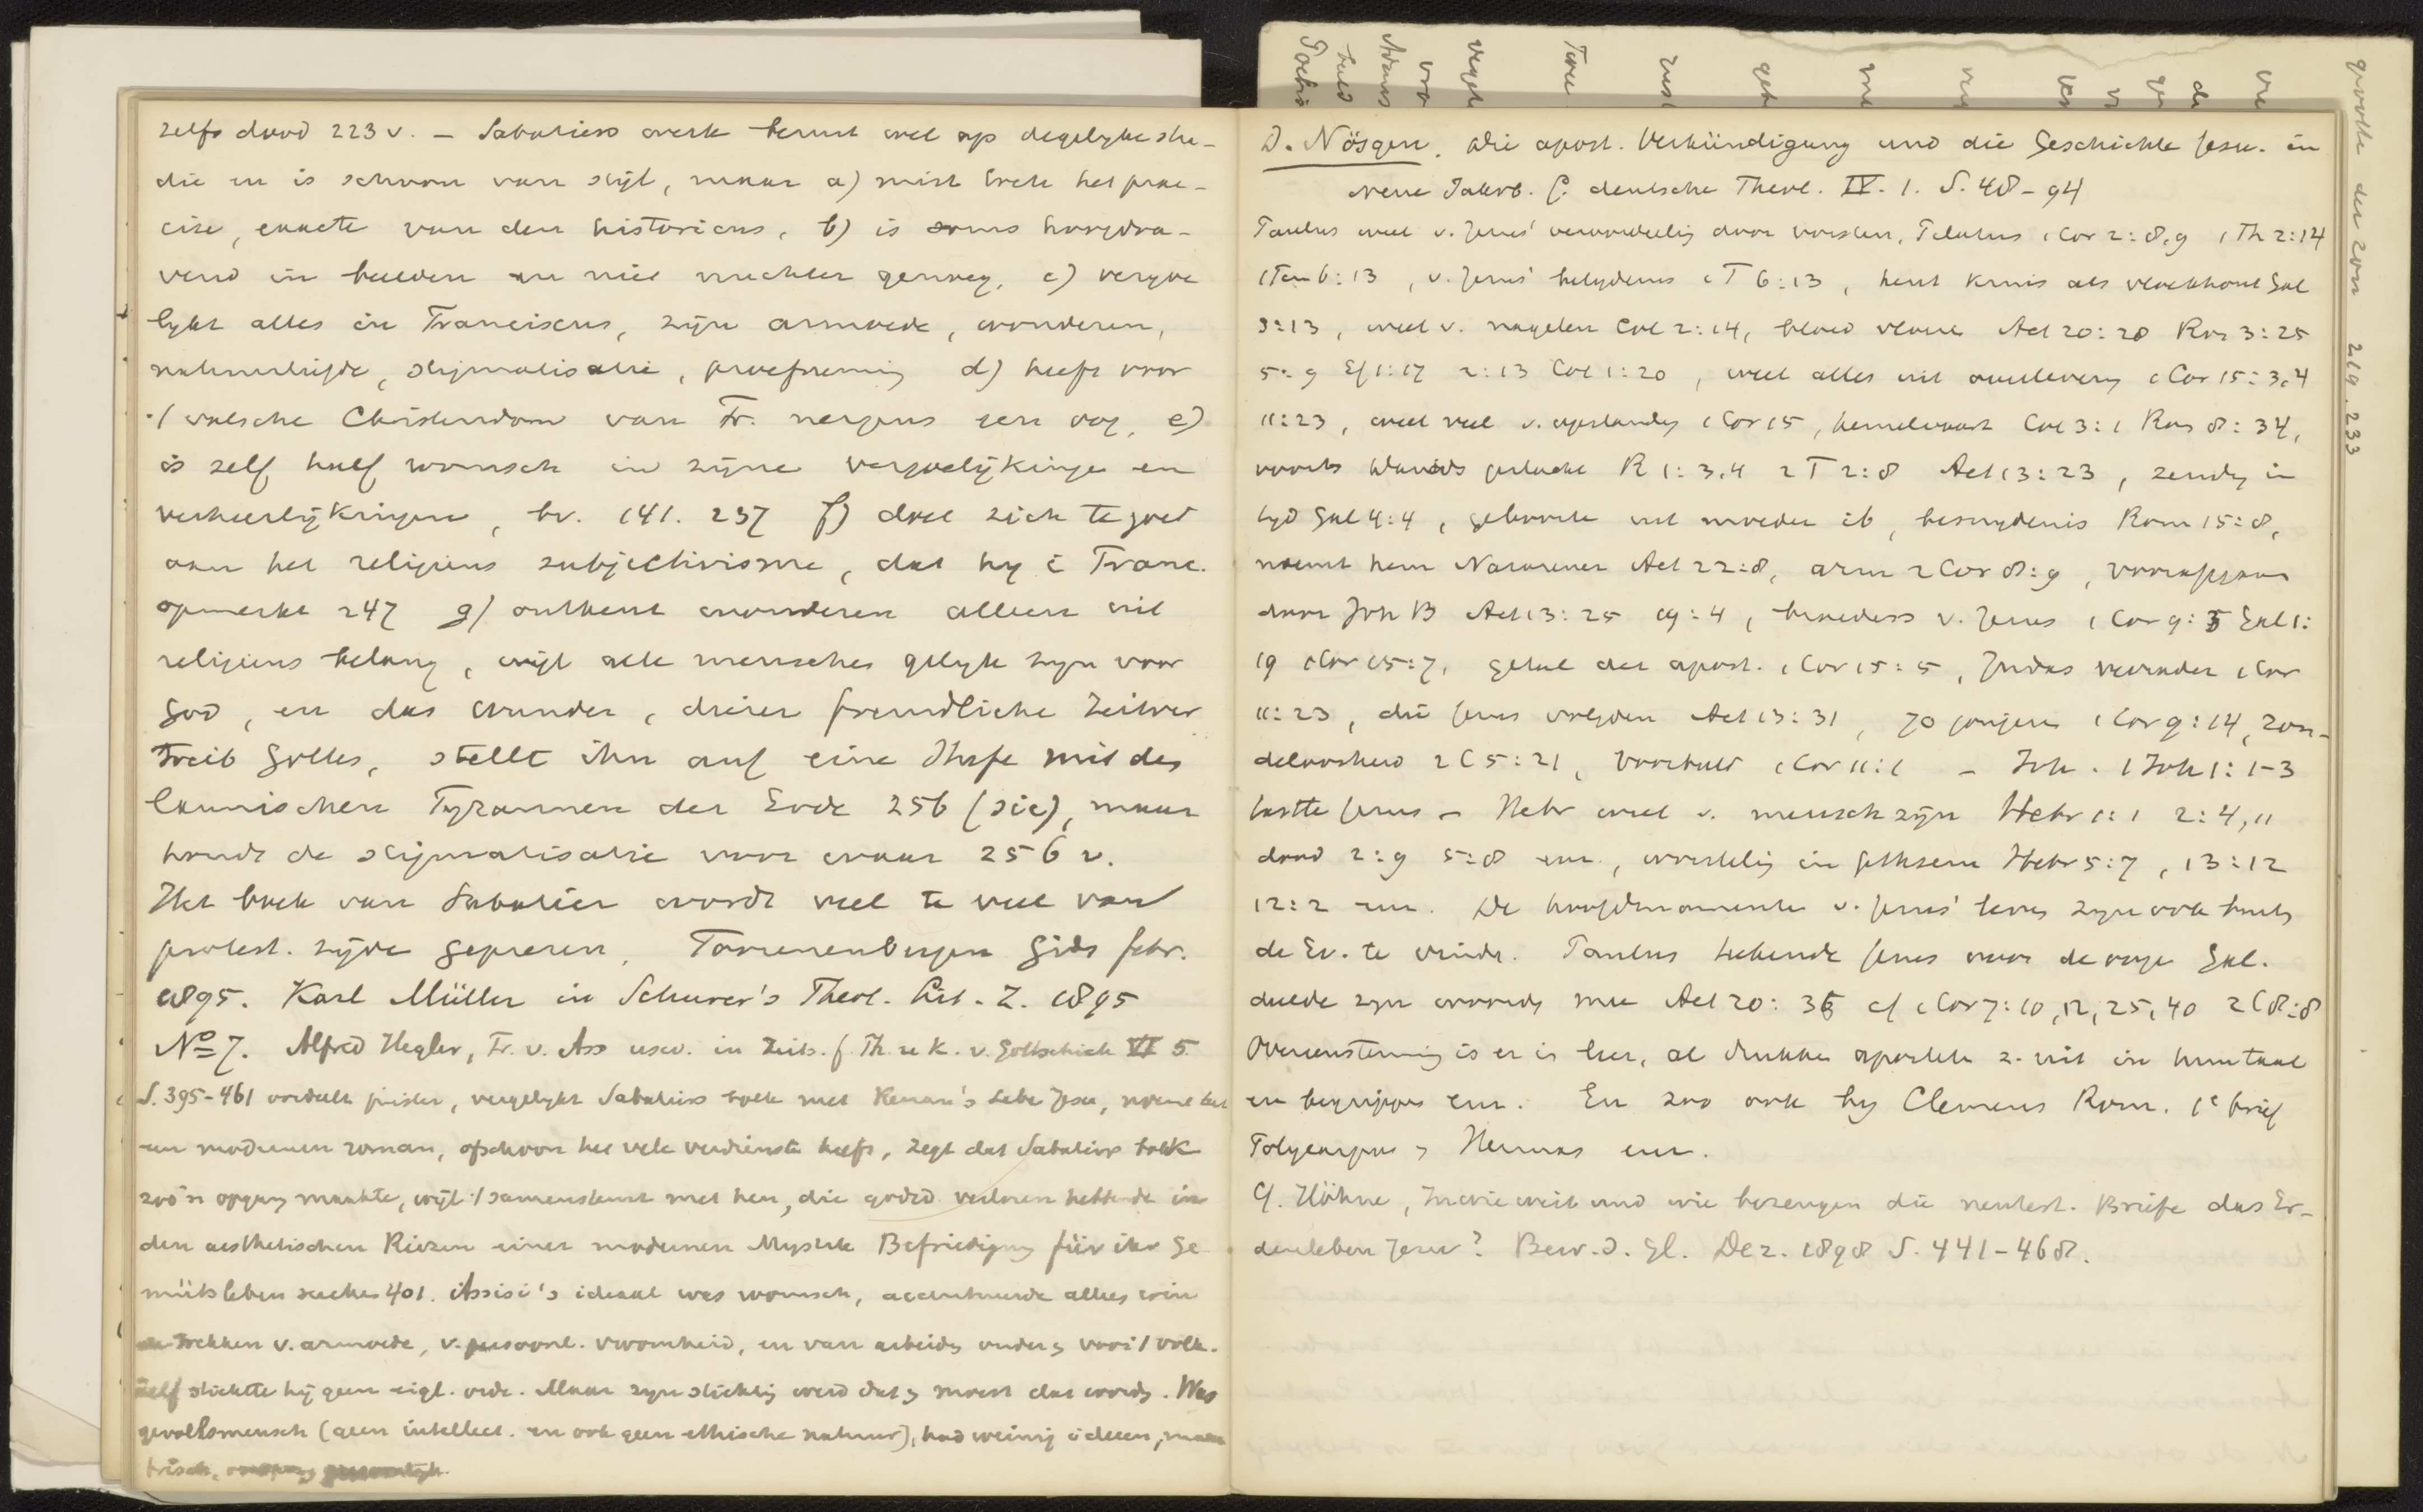 zelfs dood 223 v. – Sabatiers werk berust wel op degelyke stu-
die en is schoon van stijl, maar a) mist toch het prae-
cise, exacte van den historicus, b) is soms hoogdra-
vend in beelden en niet nuchter genoeg, c) vergoe
lykt alles in Franciscus, zijn armoede, wonderen,
natuurliefde, stigmatisatie, d) heeft voor
't valsche Christendom van Fr. nergens een oog, e)
is zelf half roomsch in zijne vergoelijkingen en
verheerlijkingen, bv. 141. 237 f) doet zich te goed
aan het religieus subjectivisme, dat hy i Franc.
opmerkt 247 g) ontkent wonderen alleen uit
religieus belang, wijl alle menschen gelyk zyn voor
God, en das Wunder, dieser freundliche Zeitver
treib Gottes, stellt ihn auf eine Stufe mit des
launischen Tyrannen der Erde 256 (sic), maar
houdt de stigmatisatie voor waar 256 v.
Het boek van Sabatier wordt veel te veel van
protest. zijde geprezen. Toorenenbergen Gids febr.
1895. Karl Müller in Schurer's Theol. Lit. Z. 1895
No 7. Alfred Hegler, Fr. v. Ass usw. in Zeits. f. Th. u K. v. Gottschick VI 5
S. 395-461 oordeelt juister, vergelykt Sabatiers boek met Renan's Lebe Jesu, noemt het
een modernen roman, ofschoon het vele verdienste heeft, zegt dat Sabatiers boek
zoo'n opgang maakte, wijl 't samenstemt met hen, die godsd. verloren hebben in
den aesthetischen Reizen einer modernen Mystik Befriedigung für ihr Ge
mütsleben suchen 401. Assisi's ideaal was roomsch, accentueerde alleen
trekken v. armoede, v. persoonl. vroomheid, en van arbeid onder voor 't volk.
Zelf stichtte hij geen eigl. orde. Maar zyn stichting werd dat moest dat worden. Was
gevoelsmensch (geen intellect. en ook geen ethische natuur), had weinig ideeen, maar
frisch,
D. Nösgen, Die apost. Verkündigung und die Geschichte Jesu. in
Neue Jahrb. f. deutsche Theol. IV. 1. S. 48-94
Paulus weet v. Jezus' veroordeeling door vorsten, Pilatus 1 Cor 2:8,9 1 Th 2:14
1 Tim 6:13, v. Jezus' belydenis 1 T 6:13, kent kruis als vloekhout Gal
3:13, weet v. nagelen Col 2:14, bloed Act 20:28 Rom 3:25
5:9 Ef 1:17 2:13 Col 1:20, weet alles uit overlevering 1 Cor 15:3,4
11:23, weet veel v. opstanding 1 Cor 15, hemelvaart Col 3:1 Rom 8:34,
voorts Davids geslacht R 1:3,4 2 T 2:8 Act 13:23, zending in
tyd Gal 4:4, geboorte uit moeder ib, besnydenis Rom 15:8,
noemt hem Nazarener Act 22:8, arm 2 Cor 8:9, voorafgegaan
door Joh B Act 13:25 19:4, broeders v. Jezus 1 Cor 9:5 Gal 1:
19 1 Cor 15:7, getal der apost. 1 Cor 15:5, Judas verrader 1 Cor
11:23, die Jezus volgden Act 13:31, 70 jongeren 1 Cor 9:14, zon-
deloosheid 2 C 5:21, voorbeeld 1 Cor 11:1 – Joh. 1 Joh 1:1-3
tastte Jezus – Hebr weet v. mensch zijn Hebr 1:1 2:4,11
dood 2:9 5:8 enz., worsteling in Gethsem Hebr 5:7, 13:12
12:2 enz. De hoofdmomenten v. Jezus' leven zyn ook buiten
de Ev. te vinden. Paulus teekende Jezus voor de oogen Gal.
deelde zyn woorden mee Act 20:35 cf 1 Cor 7:10,12,25,40 2 C 8:8
Overeenstemming is er is hier, al drukken apostelen z. uit in hun taal
en begrippen enz. En zoo ook by Clemens Rom. 1e brief
Polycarpus Hermas enz.
Cf. Höhne, Inwieweit und wie bezeugen die neutest. Briefe das Er-
denleben Jesu? Bew. d. Gl. Dez. 1898 S. 441-468.
der zon 219. 233